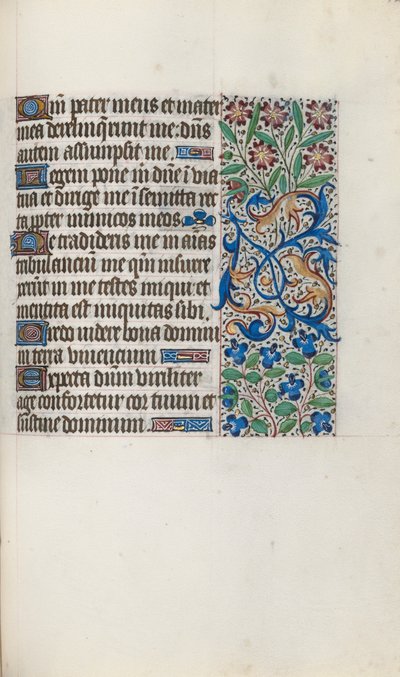 Qm̄ pater meus et mater
mea derelinqrunt me: dn̄s
autem assumpsit me.
Legem pone m̄ dn̄e ī via
tua et dirige me ī semita rec
ta ppter inimicos meos.
Ne tradideris me ī aīas
tribulanciū me qm̄ insurre
xerūt in me testes iniqui: et
mentita est iniquitas sibi.
Credo videre bona domini
in terra viuencium
Expecta dūm viriliter
age confortetur cor tuum et
sustine dominum.